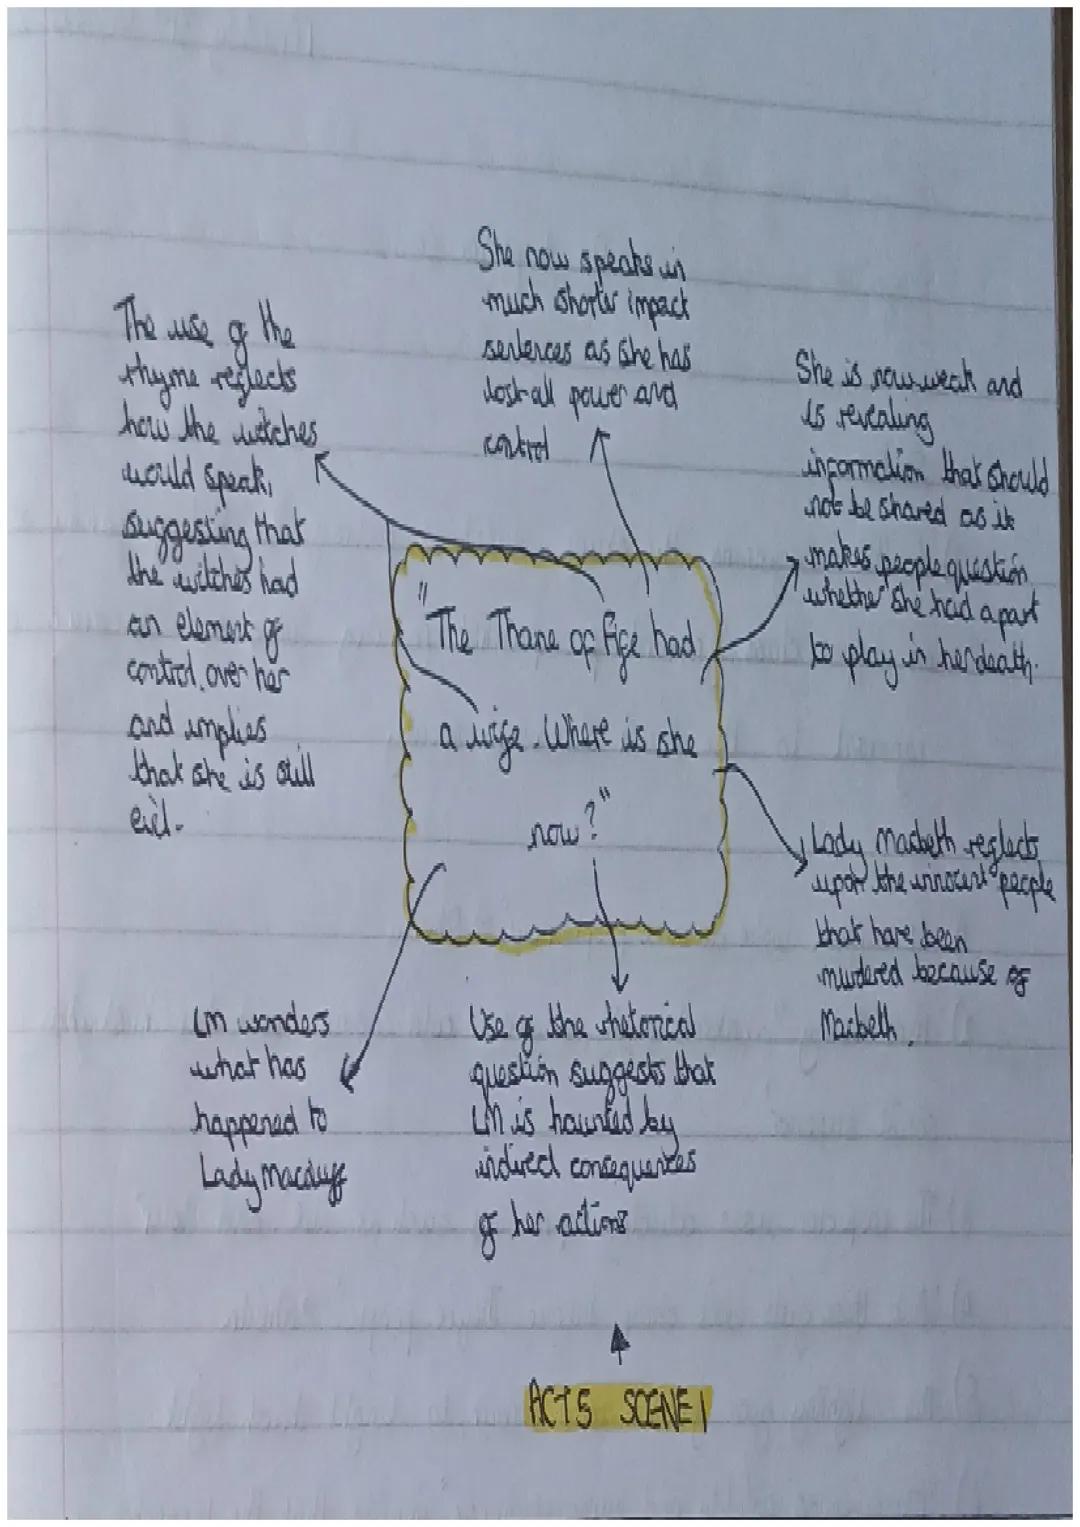 The use of the
rhyme reflects
how the witches
would speak,
suggesting that
the witches had
an element of
control over her
and implies
that she is still
evil.
She now speaks in
much shorter impact
sentences as she has
lost all power and
control
She is now weak and
is revealing
information that should
not be shared as it
makes people question
whether she had a part
to play in her death.
"The Thane of Fife had
a wife. Where is she
now?"
Lady Macbeth reflects
upon the innocent people
that have been
murdered because of
Macbeth.
LM wonders
what has
happened to
Lady Macduff
Use of the rhetorical
question suggests that
LM is haunted by
indirect consequences
of her actions
ACT 5 SCENE 1